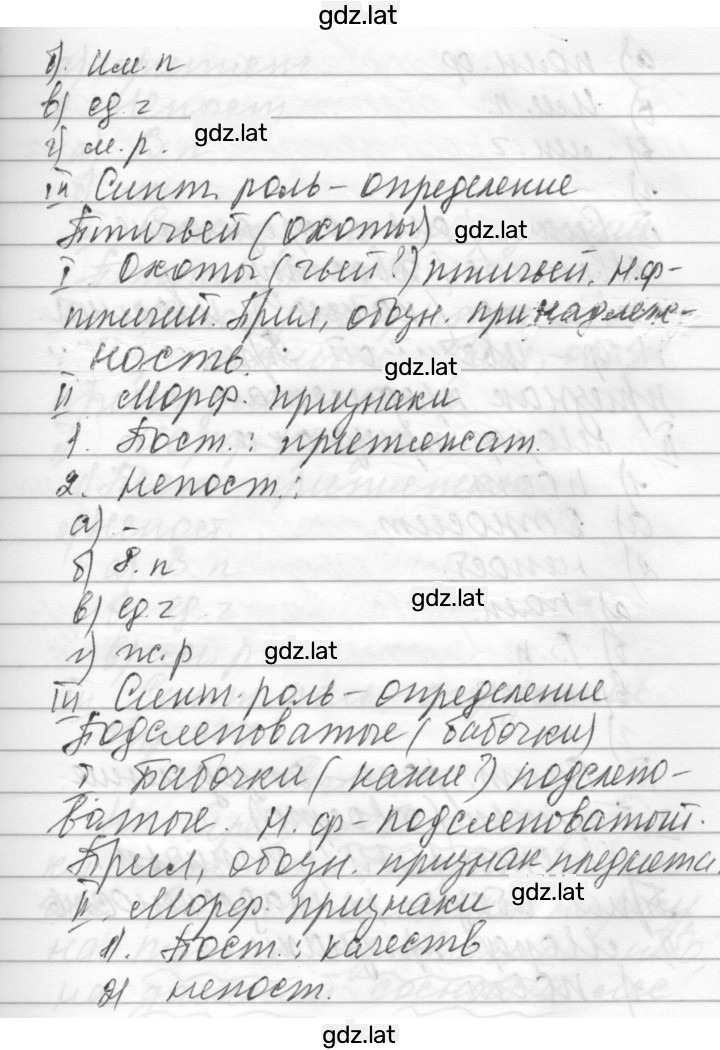 gdz.lat
б). Им. п
в) ед. ч
gdz.lat
г) м. р.
III Синт. роль - определение
Птичьей (охоты)
gdz.lat
I. Охоты (чьей?) птичьей. Н.ф-
птичий. Прил, обозн. принадлеж-
ность.
gdz.lat
II Морф. признаки
1. Пост.: притяжат.
2. непост.:
а) -
б) в. п
в) ед. ч
gdz.lat
г) ж. р
gdz.lat
III Синт. роль - определение
Подслеповатые (бабочки)
I Бабочки (какие?) подслепо-
ватые. Н. ф - подслеповатый.
Прил, обозн. признак предмета.
II. Морф. признаки
gdz.lat
1). Пост.: качеств
2) непост.
gdz.lat